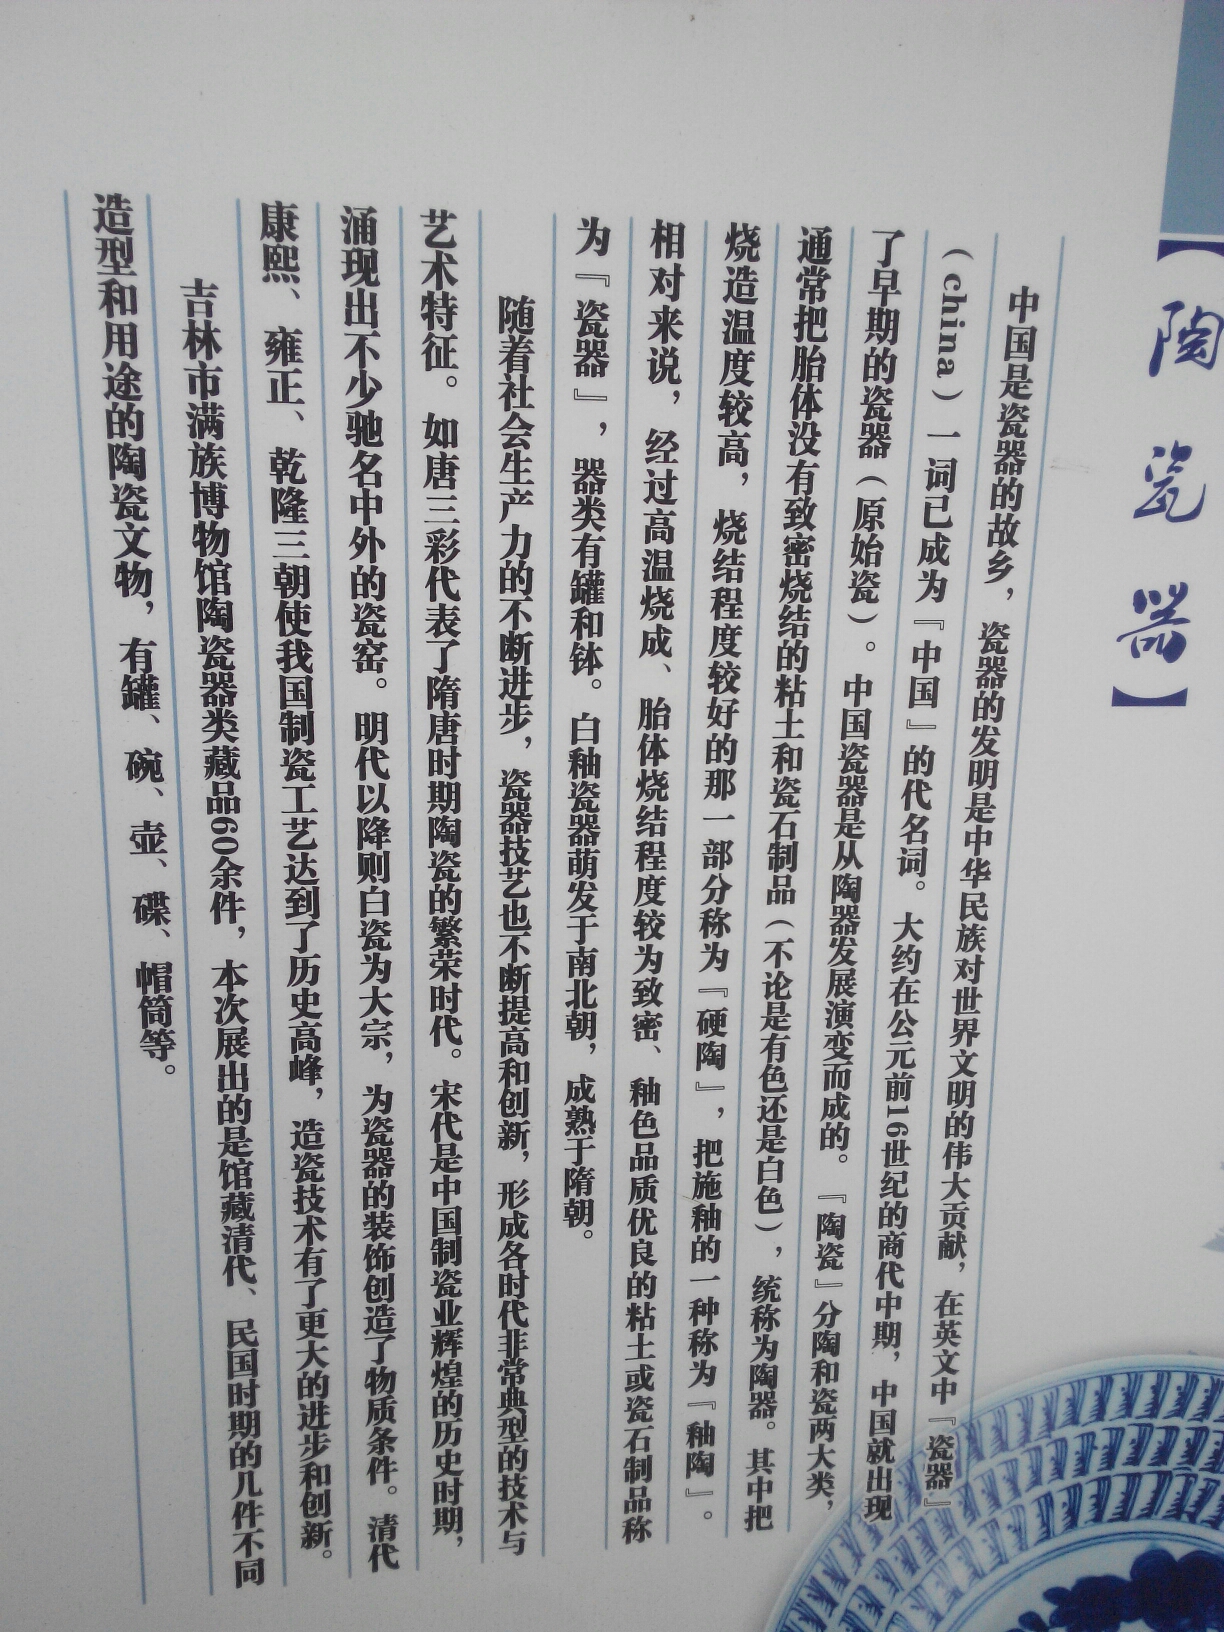 【陶瓷器】
中国是瓷器的故乡，瓷器的发明是中华民族对世界文明的伟大贡献，在英文中『瓷器』
（china）一词已成为『中国』的代名词。大约在公元前16世纪的商代中期，中国就出现
了早期的瓷器（原始瓷）。中国瓷器是从陶器发展演变而成的。『陶瓷』分陶和瓷两大类，
通常把胎体没有致密烧结的粘土和瓷石制品（不论是有色还是白色），统称为陶器。其中把
烧造温度较高，烧结程度较好的那一部分称为『硬陶』，把施釉的一种称为『釉陶』。
相对来说，经过高温烧成、胎体烧结程度较为致密、釉色品质优良的粘土或瓷石制品称
为『瓷器』，器类有罐和钵。白釉瓷器萌发于南北朝，成熟于隋朝。
随着社会生产力的不断进步，瓷器技艺也不断提高和创新，形成各时代非常典型的技术与
艺术特征。如唐三彩代表了隋唐时期陶瓷的繁荣时代。宋代是中国制瓷业辉煌的历史时期，
涌现出不少驰名中外的瓷窑。明代以降则白瓷为大宗，为瓷器的装饰创造了物质条件。清代
康熙、雍正、乾隆三朝使我国制瓷工艺达到了历史高峰，造瓷技术有了更大的进步和创新。
吉林市满族博物馆陶瓷器类藏品60余件，本次展出的是馆藏清代、民国时期的几件不同
造型和用途的陶瓷文物，有罐、碗、壶、碟、帽筒等。